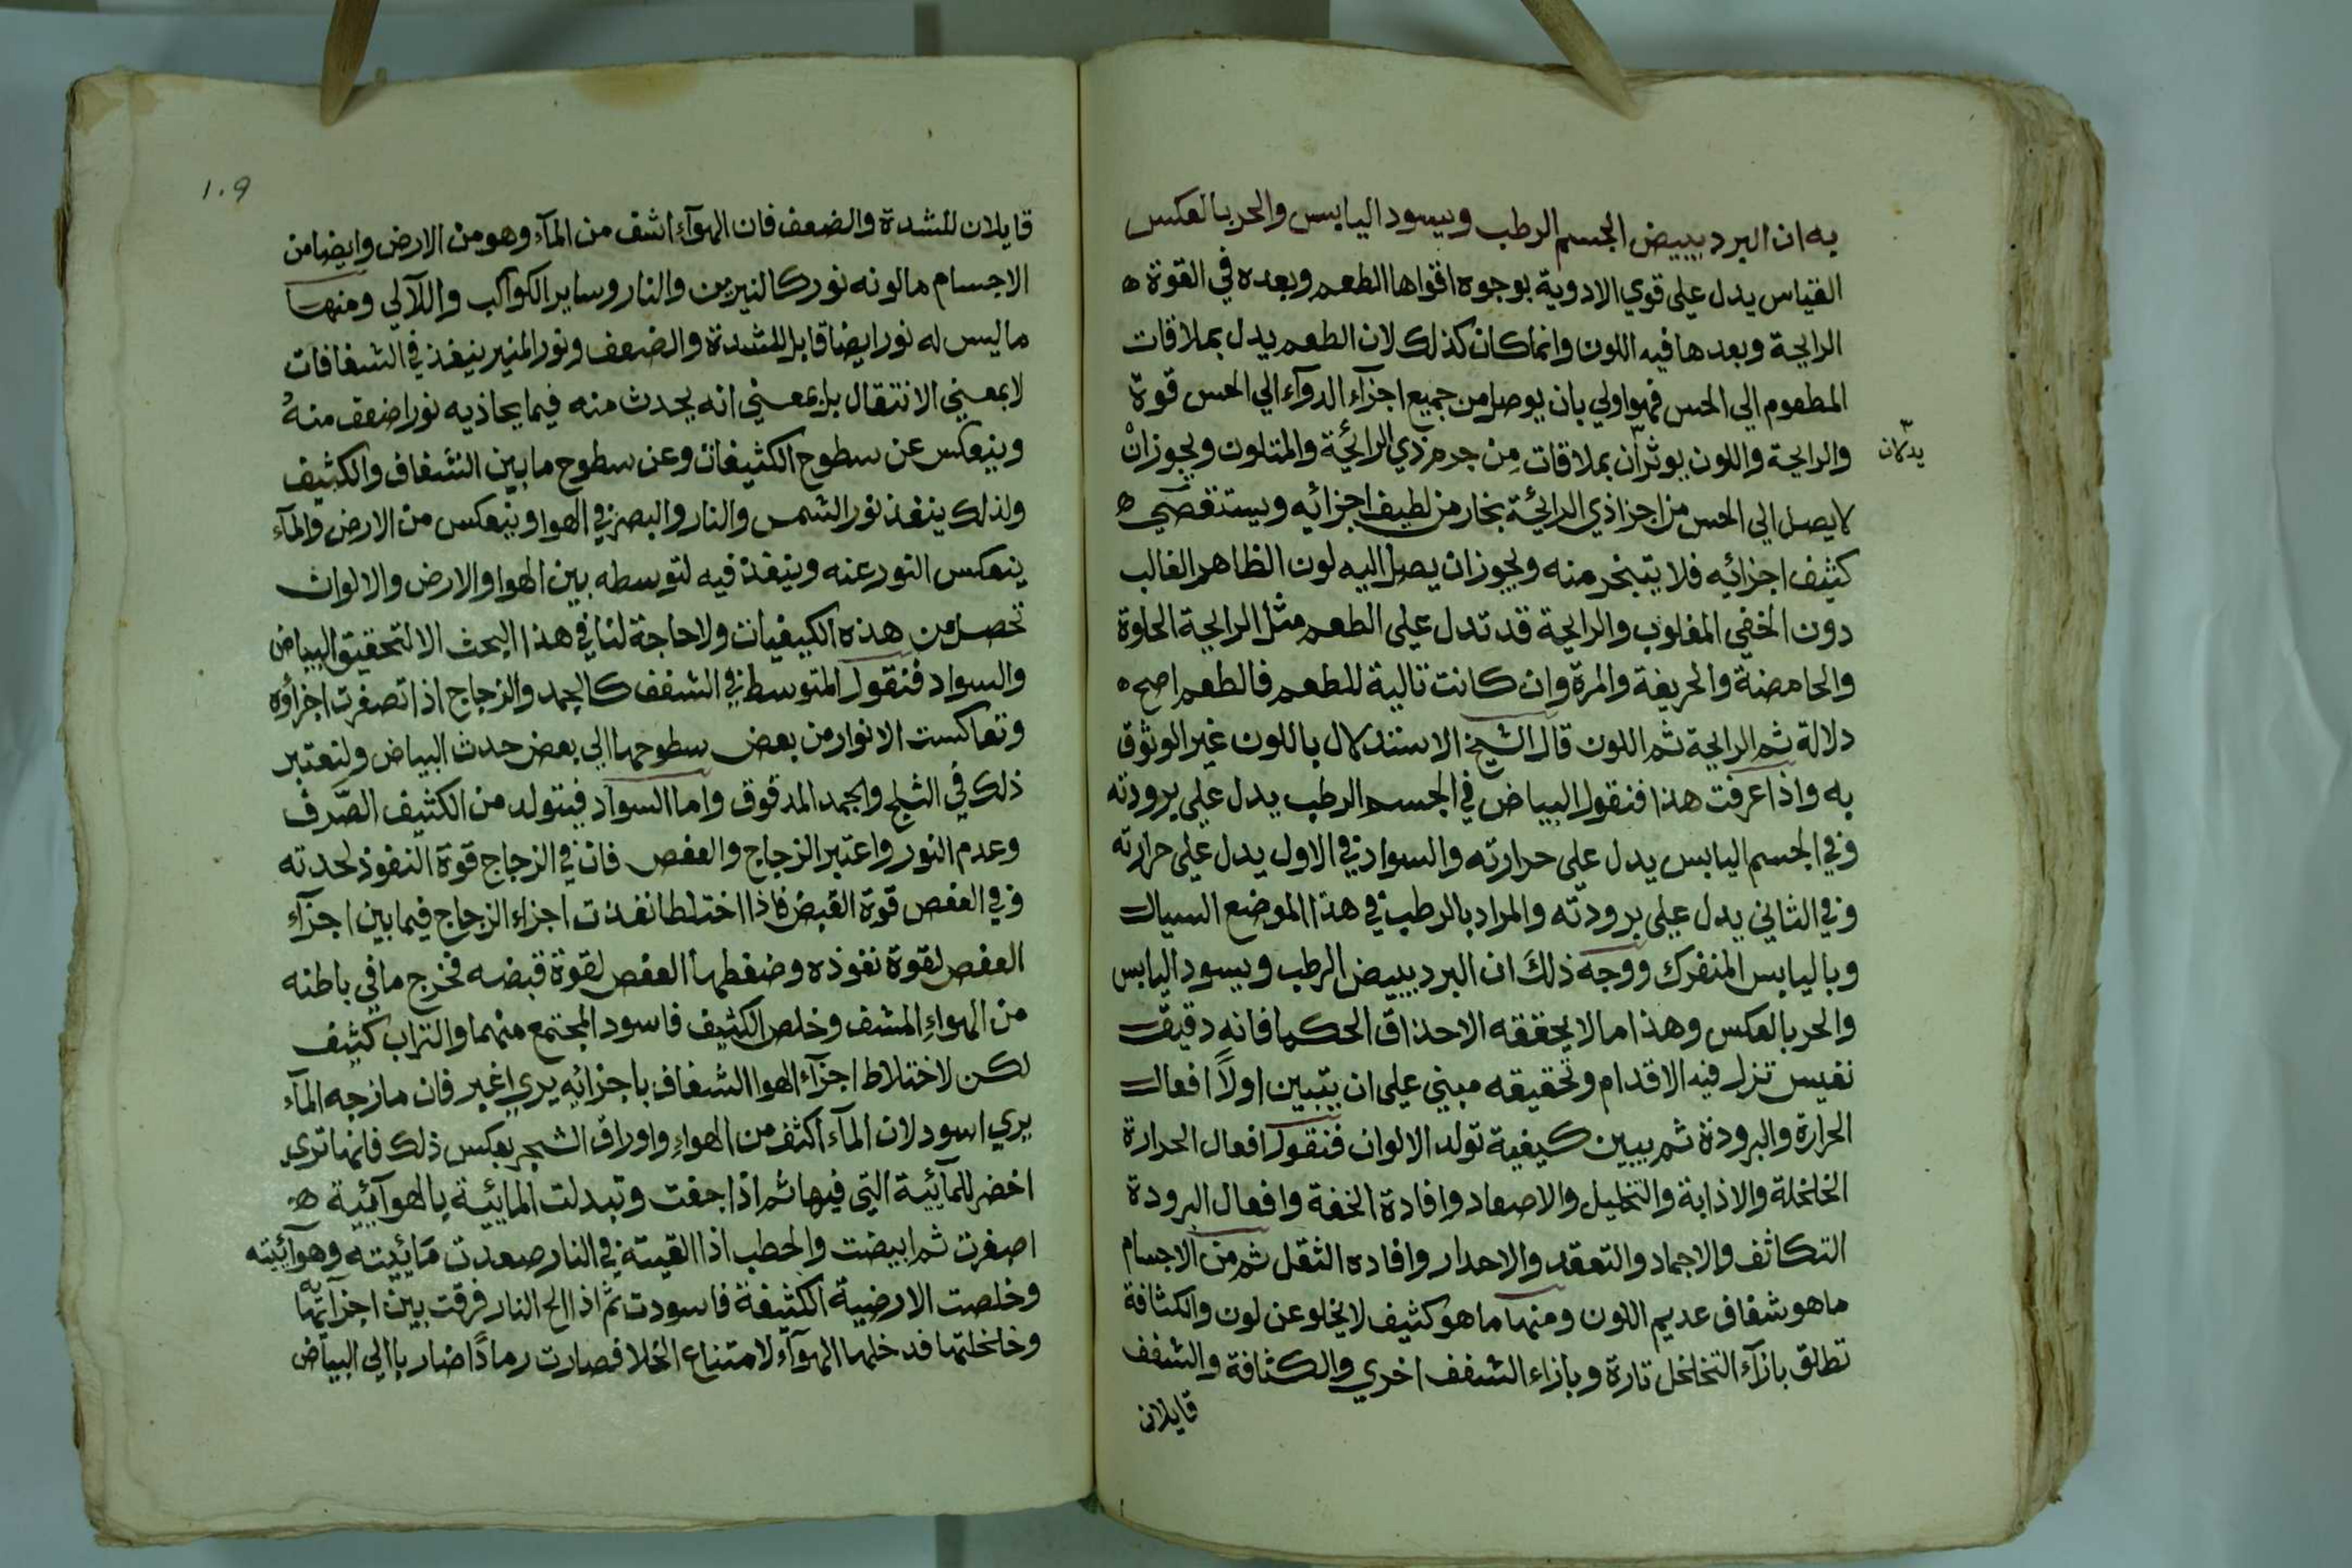 به ان البرد يبيض الجسم الرطب ويسود اليابس والحر بالعكس
القياس يدل علي قوي الادوية بوجوه اقواها الطعم وبعده في القوة ه
الرايحة وبعدها فيه اللون وانما كان كذلك لان الطعم يدل بملاقات
المطعوم الي الحس فهو اولي بان يوصل من جميع اجزآء الدوآء الي الحس قوة
والرايحة واللون يوثرآن بملاقات مِن جرم ذي الرائحة والمتلون ويجوز انْ
يدلان
لا يصل الي الحس من اجزا ذي الرائحة بخار من لطيف اجزائه ويستقصي ه
كثيف اجزائه فلا يتبخر منه ويجوز ان يصل اليه لون الظاهر الغالب
دون الخفي المغلوب والرايحة قد تدل علي الطعم مثل الرايحة الحلوة
والحامضة والحريفة والمرة وان كانت تالية للطعم فالطعم اصح ه
دلالة ثم الرايحة ثم اللون قال الشيخ الاستدلال باللون غير الوثوق
به واذا عرفت هذا فنقول البياض في الجسم الرطب يدل علي برودته
وفي الجسم اليابس يدل علي حرارته والسواد في الاول يدل علي حرارته
وفي الثاني يدل علي برودته والمراد بالرطب في هذا الموضع السيال
وباليابس المنفرك ووجه ذلك ان البرد يبيض الرطب ويسود اليابس
والحر بالعكس وهذا ما لا يحققه الا حذاق الحكما فانه دقيق
نفيس تزل فيه الاقدام وتحقيقه مبني علي ان يتبين اولاً افعال
الحرارة والبرودة ثم يبين كيفية تولد الالوان فنقول افعال الحرارة
الخلخلة والاذابة والتحليل والاصعاد وافادة الخفة وافعال البرودة
التكاثف والاجماد والتعقد والاحدار وافاده الثقل ثم من الاجسام
ما هو شفاف عديم اللون ومنها ما هو كثيف لا يخلو عن لون والكثافة
تطلق بازآء التخلخل تارة وبازاء الشفف اخري والكثافة والشفف
قايلان
١٠٩
قايلان للشدة والضعف فان الهوآء اشف من المآء وهو من الارض وايضا من
الاجسام ما لونه نور كالنيرين والنار وساير الكواكب واللآلي ومنها
ما ليس له نور ايضا قابل للشدة والضعف ونور المنير ينفذ في الشفافات
لا بمعني الانتقال بل بمعني انه يحدث منه فيما يحاذيه نورا ضعف منهُ
وينعكس عن سطوح الكثيفات وعن سطوح ما بين الشفاف والكثيف
ولذلك ينفذ نور الشمس والنار والبصر في الهوا وينعكس من الارض والمآء
ينعكس النور عنه وينفذ فيه لتوسطه بين الهوا والارض والالوان
تحصل من هذه الكيفيات ولا حاجة لنا في هذا البحث الا لتحقيق البياض
والسواد فنقول المتوسط في الشفف كالجمد والزجاج اذا تصغرت اجزاؤه
وتعاكست الانوار من بعض سطوحها الي بعض حدث البياض ولتعتبر
ذلك في الثلج والجمد المدقوق واما السواد فيتولد من الكثيف الصّرف
وعدم النور واعتبر الزجاج والعفص فان في الزجاج قوة النفوذ لحدته
وفي العفص قوة القبض فاذا اختلطا نفذت اجزاء الزجاج فيما بين اجزآء
العفص لقوة نفوذه وضغطها العفص لقوة قبضه فخرج ما في باطنه
من الهواء المشف وخلص الكثيف فاسود المجتمع منهما والتراب كثيف
لكن لاختلاط اجزآء الهوا الشفاف باجزائه يري اغبر فان مازجه المآء
يري اسود لان المآء اكثف من الهواء واوراق الشجر بعكس ذلك فانها تري
اخضر للمآئية التي فيها ثم اذا جفت وتبدلت المائية بالهوآئية ه
اصفرت ثم ابيضت والحطب اذا القيته في النار صعدت مَائيته وهوآئيته
وخلصت الارضية الكثيفة فاسودت ثم اذا الح النار فرقت بين اجزآئها به
وخلخلتها فدخلها الهوآء لامتناع الخلا فصارت رماداً ضاربا الي البياض